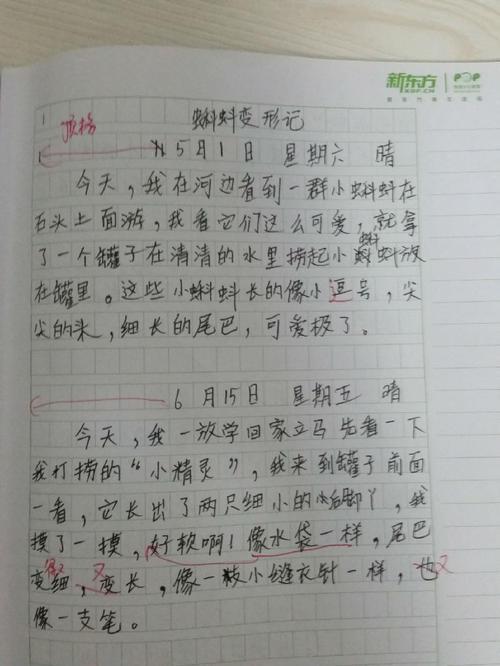 新东方
XDF.CN
POP
顶格
蝌蚪变形记
5月1日 星期六 晴
今天,我在河边看到一群小蝌蚪在
石头上面游,我看它们这么可爱,就拿
了一个罐子在清清的水里捞起小蝌蚪放
在罐里。这些小蝌蚪长的像小逗号,尖
尖的头,细长的尾巴,可爱极了。
6月15日 星期五 晴
今天,我一放学回家立马先看一下
我打捞的“小精灵”,我来到罐子前面
一看,它长出了两只细小的小后脚丫,我
摸了一摸,好软啊!像水袋一样,尾巴
变细,又变长,像一枝小缝衣针一样,也又
像一支笔。